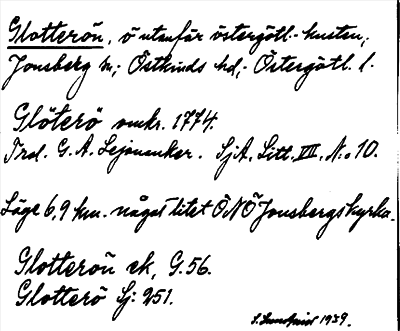 Glotterön, ö utanför östergötl. kusten,
Jonsberg sn; Östkinds hd; Östergötl. l.
Glöterö omkr. 1774.
Trol. G. A. Lejonanker. SjA, Litt. VIII, N:o 10.
Läge 6,9 km. något litet ÖNÖ Jonsbergs kyrka.
Glotterön ek, G. 56.
Glotterö Sj: 251.
1939.